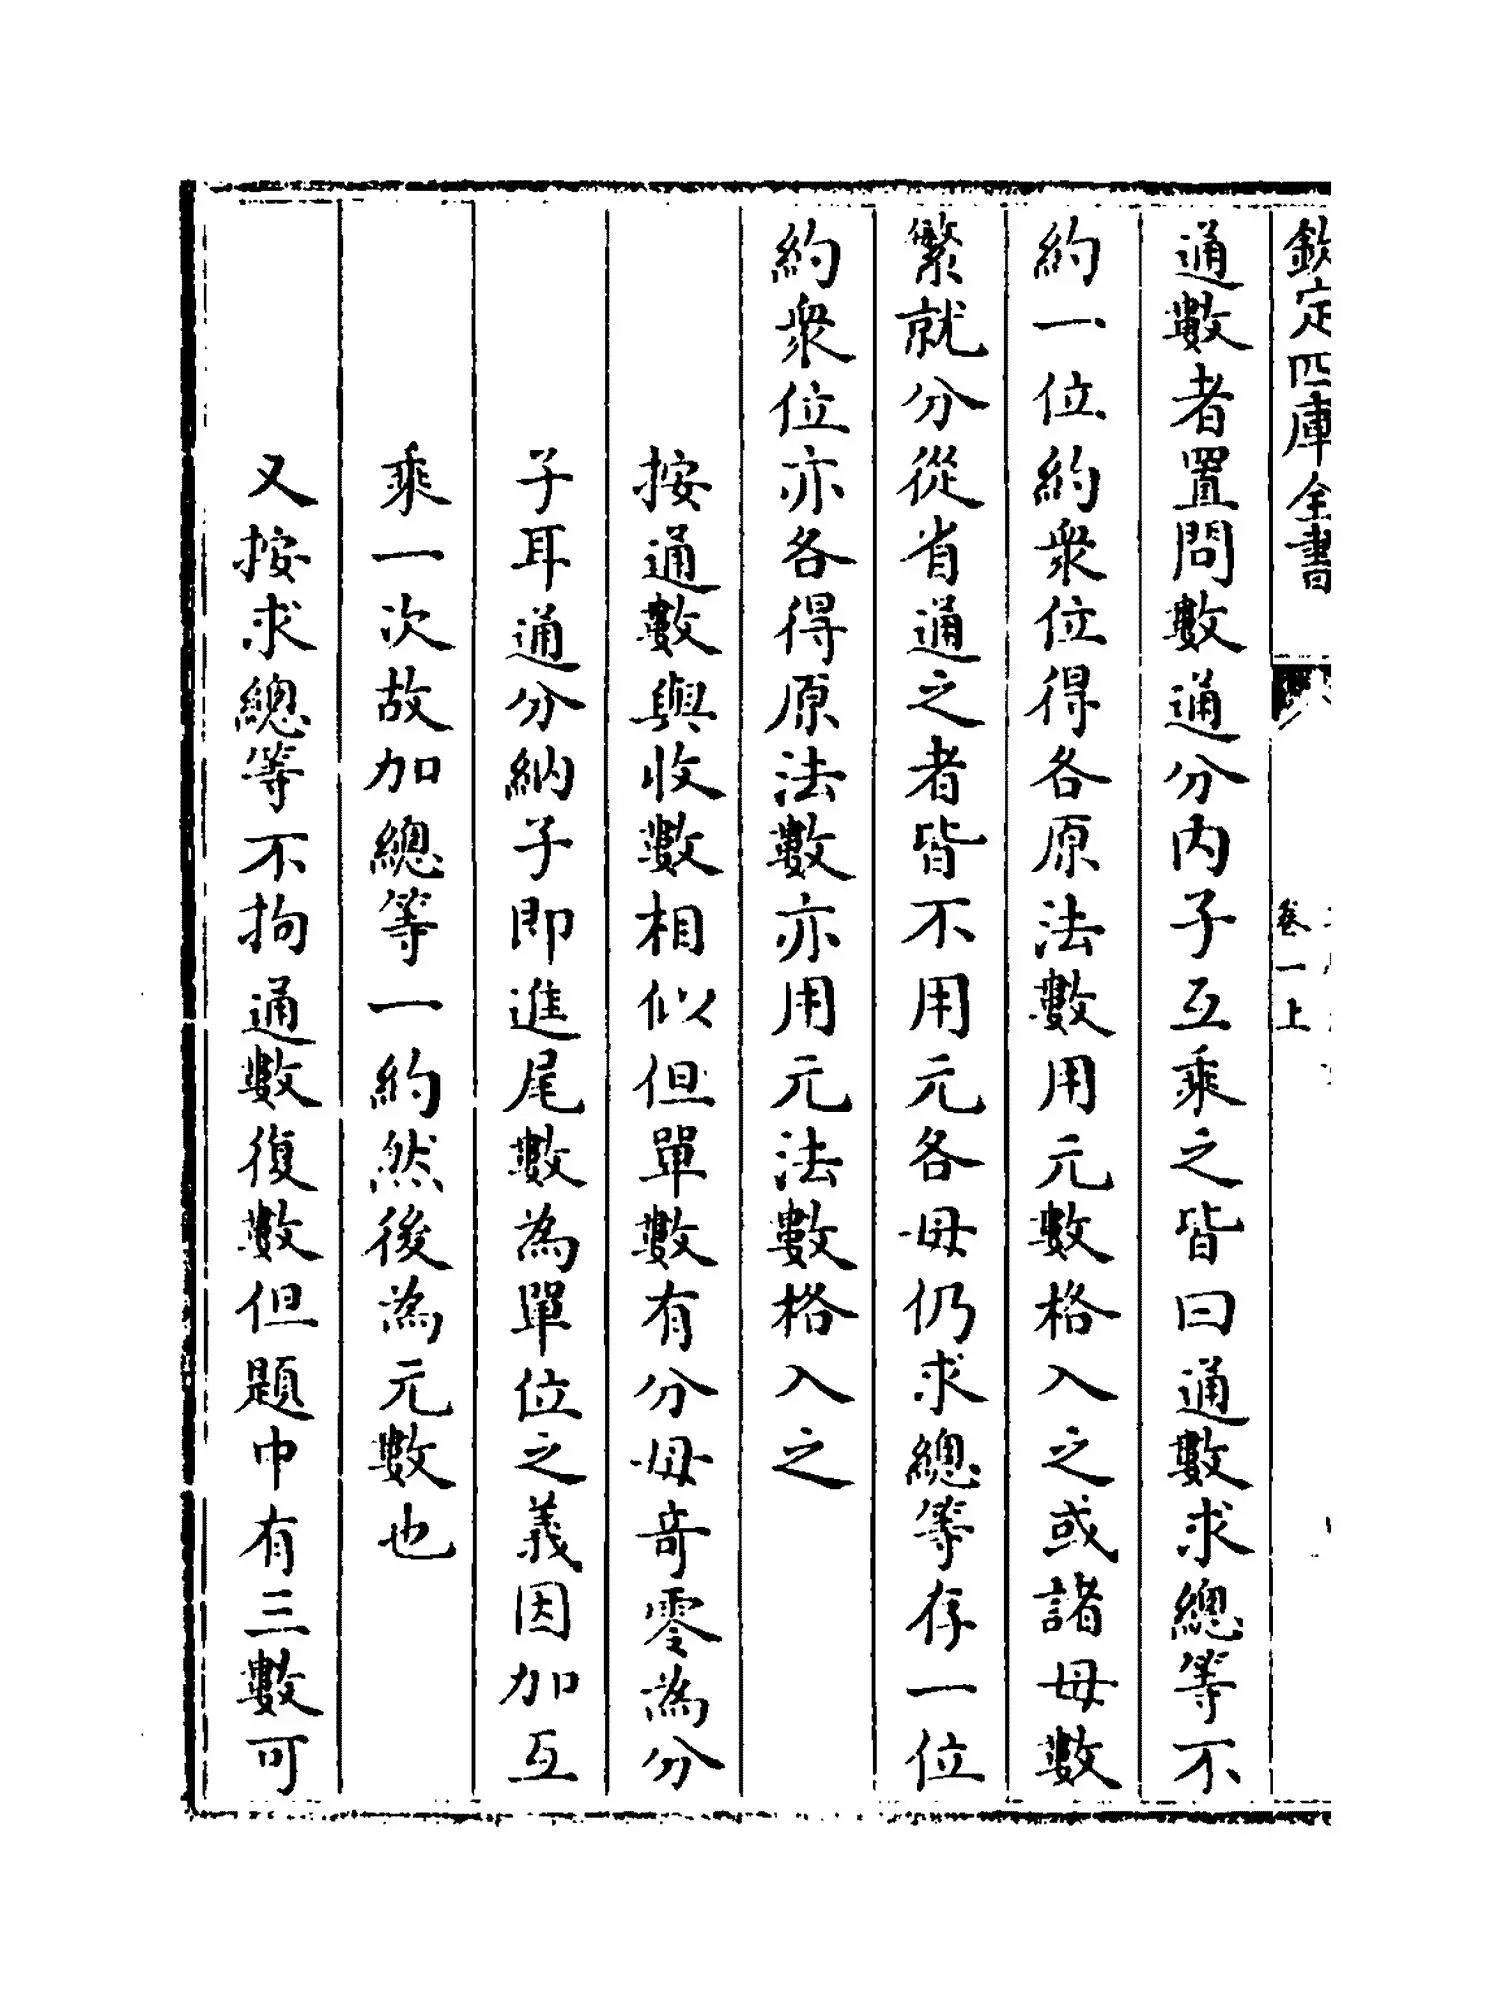 欽定四庫全書
卷一上
通數者置問數通分内子互乘之皆曰通數求總等不
約一位約衆位得各原法數用元數格入之或諸母數
繁就分從省通之者皆不用元各母仍求總等存一位
約衆位亦各得原法數亦用元法數格入之
按通數與收數相似但單數有分母竒零為分
子耳通分納子即進尾數為單位之義因加互
乘一次故加總等一約然後為元數也
又按求總等不拘通數復數但題中有三數可